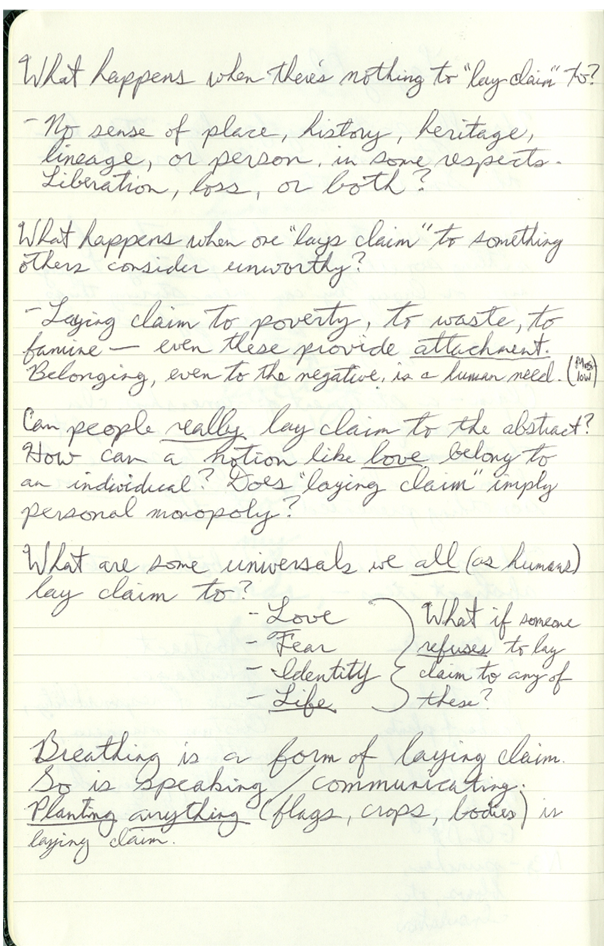 What happens when there's nothing to "lay claim" to?
- No sense of place, history, heritage,
lineage, or person, in some respects.
Liberation, loss, or both?
What happens when one "lays claim" to something
others consider unworthy?
- Laying claim to poverty, to waste, to
famine — even these provide attachment.
Belonging, even to the negative, is a human need. (Maslow)
Can people really lay claim to the abstract?
How can a notion like love belong to
an individual? Does "laying claim" imply
personal monopoly?
What are some universals we all (as humans)
lay claim to?
- Love
- Fear
- Identity
- Life
What if someone
refuses to lay
claim to any of
these?
Breathing is a form of laying claim.
So is speaking/communicating.
Planting anything (flags, crops, bodies) is
laying claim.